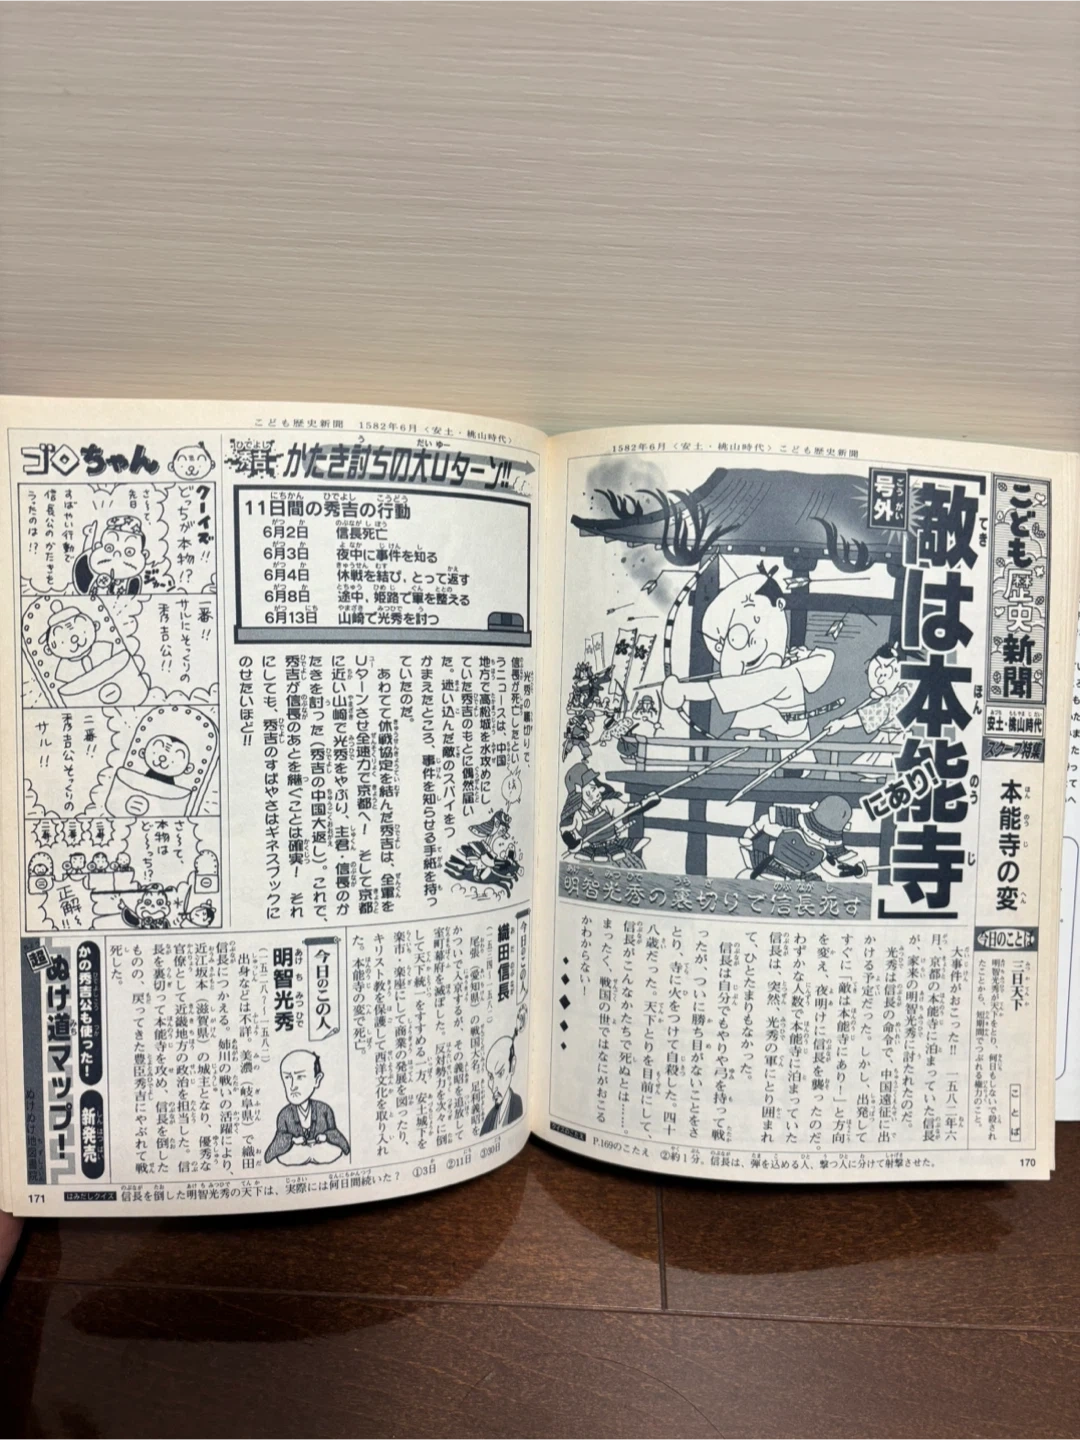 1582年6月〈安土・桃山時代〉こども歴史新聞
こども歴史新聞
安土・桃山時代
スクープ特集
本能寺の変
今日のことば
三日天下
明智光秀が天下をとり、何日もしないで殺され
たことから、短期間でつぶれる権力のこと。
ことば
号外
「敵は本能寺」
にあり!
明智光秀の裏切りで信長死す
大事件がおこった!! 一五八二年六
月、京都の本能寺に泊まっていた信長
が、家来の明智光秀に討たれたのだ。
光秀は信長の命令で、中国遠征に出
かける予定だった。しかし、出発して
すぐに「敵は本能寺にあり!」と方向
を変え、夜明けに信長を襲ったのだ。
わずかな人数で本能寺に泊まっていた
信長は、突然、光秀の軍にとり囲まれ
て、ひとたまりもなかった。
信長は自分でもやりや弓を持って戦
ったが、ついに勝ち目がないことをさ
とり、寺に火をつけて自殺した。四十
八歳だった。天下とりを目前にして、
信長がこんなかたちで死ぬとは……。
まったく、戦国の世ではなにがおこる
かわからない!
クイズのこたえ P.169のこたえ ②約1分。信長は、弾を込める人、撃つ人に分けて射撃させた。
170
こども歴史新聞 1582年6月〈安土・桃山時代〉
秀吉 かたき討ちの大Uターン!!
11日間の秀吉の行動
6月2日 信長死亡
6月3日 夜中に事件を知る
6月4日 休戦を結び、とって返す
6月8日 途中、姫路で軍を整える
6月13日 山崎で光秀を討つ
光秀の裏切りで、
信長が死亡したとい
うニュースは、中国
地方で高松城を水攻めにし
ていた秀吉のもとに偶然届い
た。迷い込んだ敵のスパイをつ
かまえたところ、事件を知らせる手紙を持っ
ていたのだ。
あわてて休戦協定を結んだ秀吉は、全軍を
Uターンさせ全速力で京都へ! そして京都
に近い山崎で光秀をやぶり、主君・信長のか
たきを討った(秀吉の中国大返し)。これで、
秀吉が信長のあとを継ぐことは確実! それ
にしても、秀吉のすばやさはギネスブックに
のせたいほど!!
ゴロちゃん
クーイズ!!
どっちが本物!?
さ〜て、
先日
すばやい行動で
信長公のかたきを
うったのは!?
ジャーン
一番!!
サルにそっくりの
秀吉公!!
二番!!
秀吉公そっくりの
サル!!
さ〜て、
本物は
ど〜っち!?
正解!!
今日のこの人
織田信長
(一五三四〜一五八二)
尾張(愛知県)の戦国大名。足利義昭を
かついで入京するが、その義昭を追放して
室町幕府を滅ぼした。反対勢力を次々に倒
して天下統一をすすめる一方、安土城下を
楽市・楽座にして商業の発展を図ったり、
キリスト教を保護して西洋文化を取り入れ
た。本能寺の変で死亡。
今日のこの人
明智光秀
(一五二八?〜一五八二)
出身などは不詳。美濃(岐阜県)で織田
信長につかえる。姉川の戦いの活躍により、
近江坂本(滋賀県)の城主となり、優秀な
官僚として近畿地方の政治を担当した。信
長を裏切って本能寺を攻め、信長を倒した
ものの、戻ってきた豊臣秀吉にやぶれて戦
死した。
かの秀吉公も使った!
新発売
超ぬけ道マップ!
ぬけぬけ地図書院
171
はみだしクイズ 信長を倒した明智光秀の天下は、実際には何日間続いた? ①3日 ②11日 ③30日